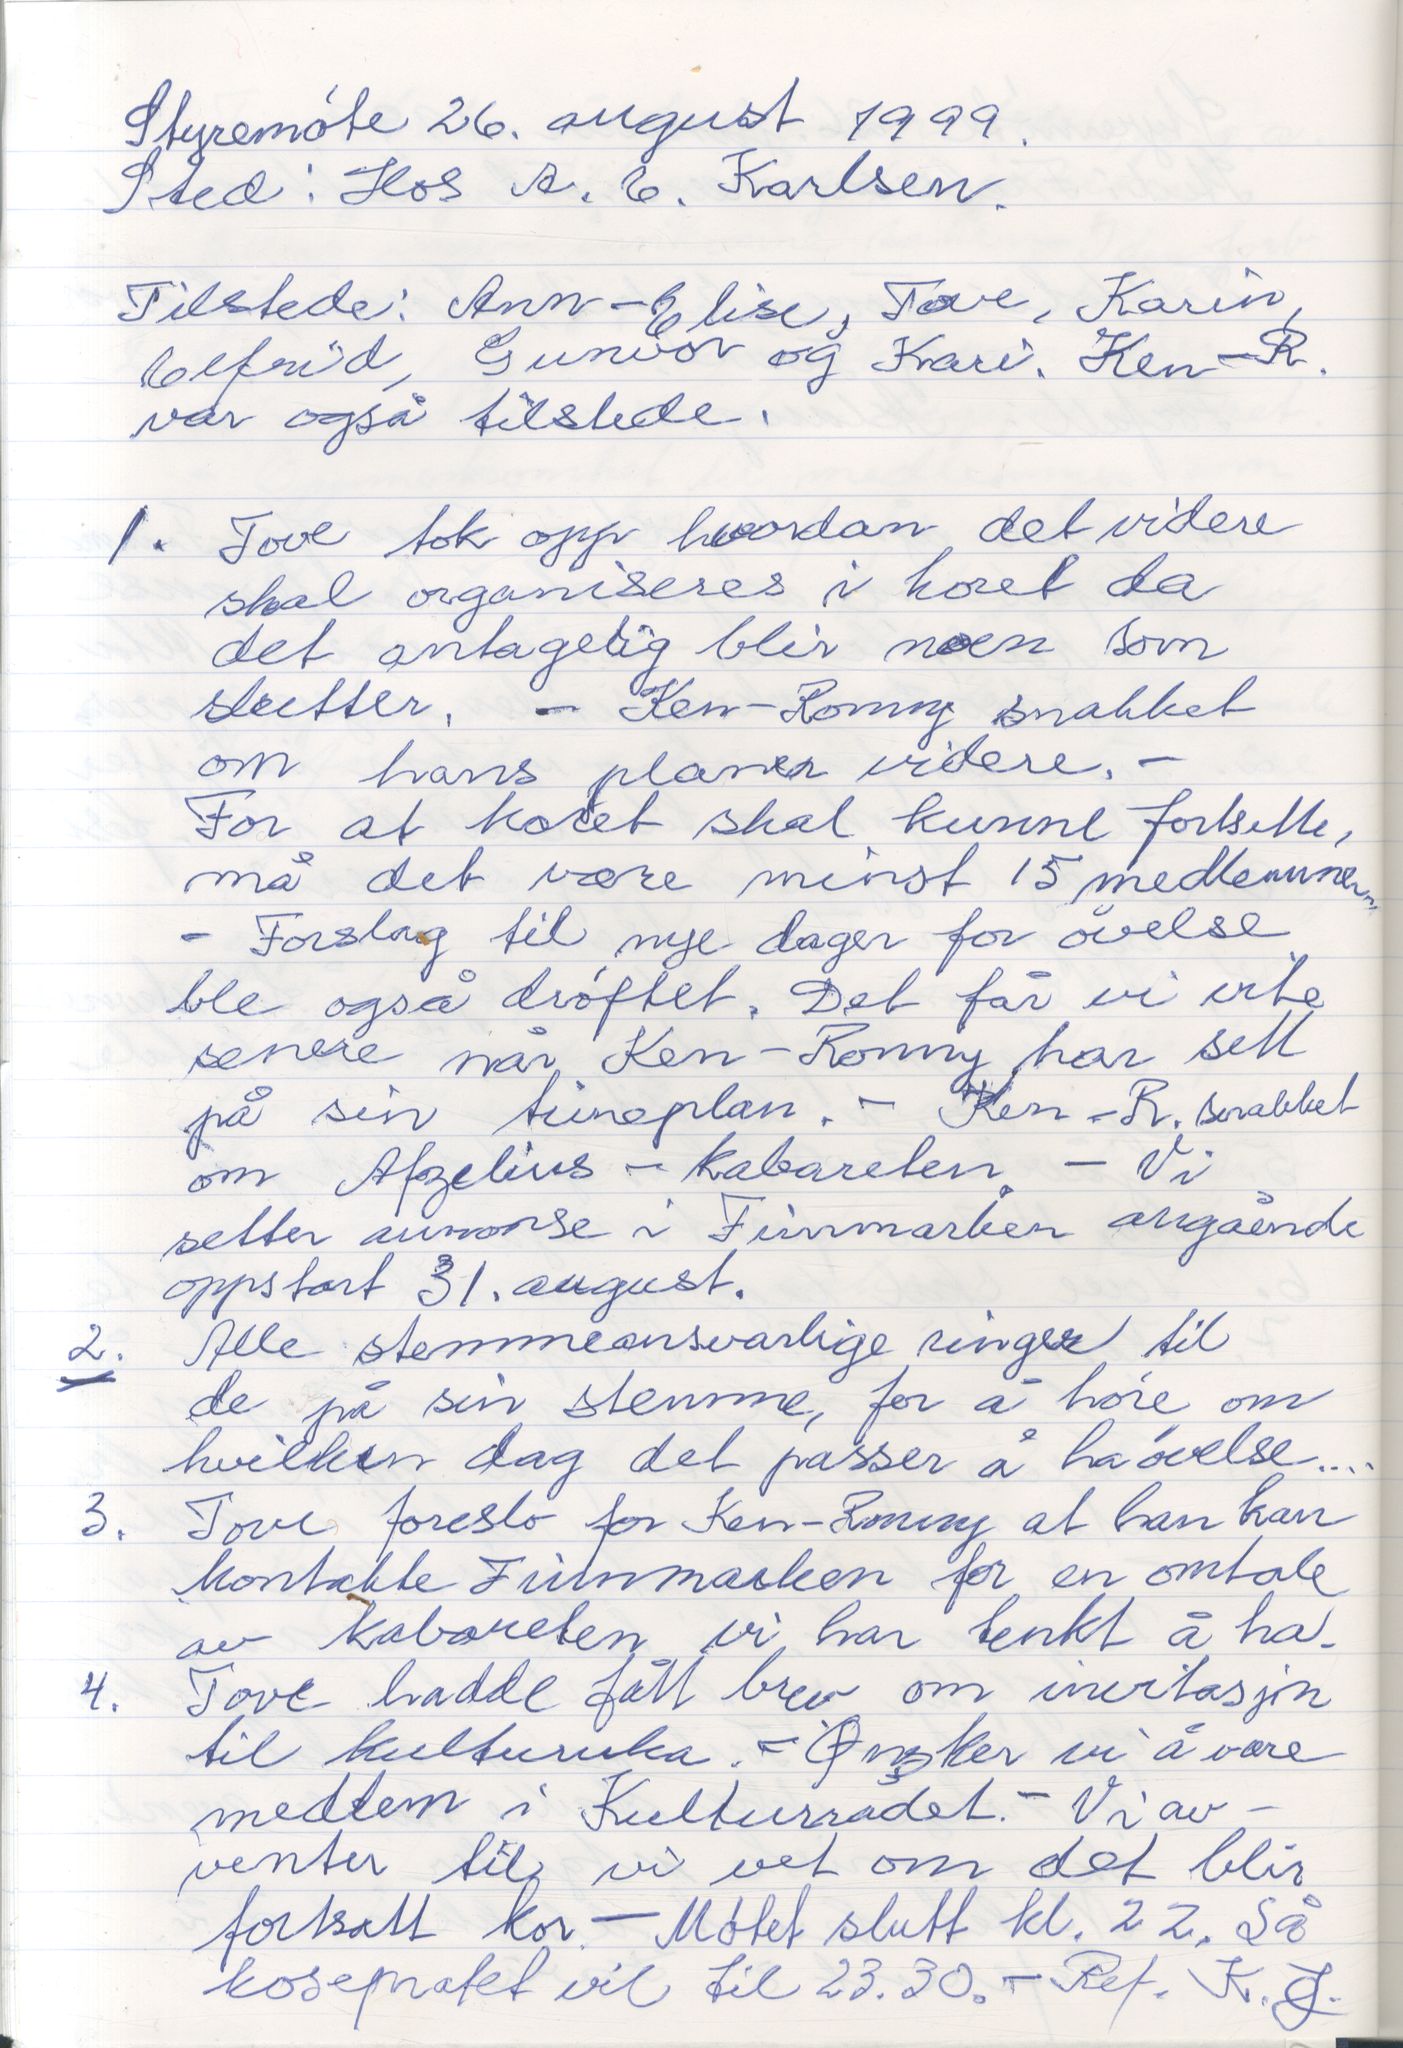 Styremöte 26. august 1999.
Sted: Hos A. E. Karlsen.
Tilstede: Ann-Elise, Tove, Karin,
Elfrid, Gunvor og Kari. Ken-R.
var også tilstede.
1. Tove tok opp hvordan det videre
skal organiseres i koret da
det antagelig blir noen som
slutter. - Ken-Ronny snakket
om hans planer videre. -
For at koret skal kunne fortsette,
må det være minst 15 medlemmer.
- Forslag til nye dager for övelse
ble også dröftet. Det får vi vite
senere når Ken-Ronny har sett
på sin timeplan. - Ken-R. snakket
om Afzelius-kabareten. - Vi
setter annonse i Finnmarken angående
oppstart 31. august.
2. Alle stemmeansvarlige ringer til
de på sin stemme, for å höre om
hvilken dag det passer å ha övelse....
3. Tove foreslo for Ken-Ronny at han kan
kontakte Finnmarken for en omtale
av kabareten vi har tenkt å ha.
4. Tove hadde fått brev om invitasjon
til kulturuka. - Ønsker vi å være
medlem i Kulturrådet. - Vi av-
venter til vi vet om det blir
fortsatt kor. - Mötet slutt kl. 22. Så
kosepratet vi til 23.30. - Ref. K. J.